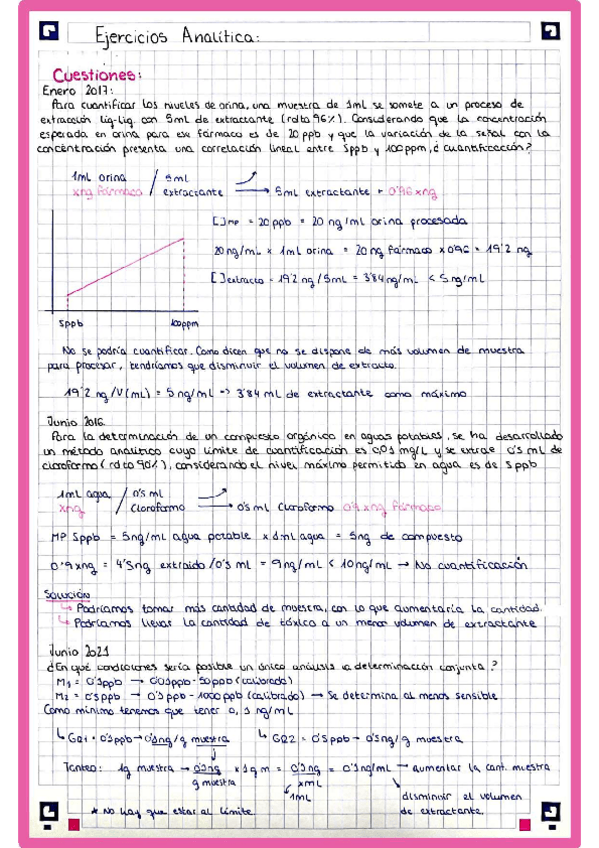 Ejercicios Analítica:
Cuestiones:
Enero 2017:
Para cuantificar los niveles de orina, una muestra de 1mL se somete a un proceso de
extracción líq-líq. con 5mL de extractante (rdto 96%). Considerando que la concentración
esperada en orina para ese fármaco es de 20 ppb y que la variación de la señal con la
concentración presenta una correlación lineal entre 5ppb y 100ppm, ¿cuantificación?
1mL orina / 5mL
xng fármaco / extractante → 5mL extractante + 0'96 xng
[ ]MP = 20ppb = 20 ng/mL orina procesada
20ng/mL x 1mL orina = 20 ng fármaco x 0'96 = 19'2 ng
[ ]extracto = 19'2 ng/5mL = 3'84ng/mL < 5ng/mL
5ppb 100ppm
No se podría cuantificar. Como dicen que no se dispone de más volumen de muestra
para procesar, tendríamos que disminuir el volumen de extracto.
19'2 ng/V(mL) = 5ng/mL → 3'84 mL de extractante como máximo
Junio 2016
Para la determinación de un compuesto orgánico en aguas potables, se ha desarrollado
un método analítico cuyo límite de cuantificación es 0,01 mg/L y se extrae 0'5 mL de
cloroformo (rdto 90%), considerando el nivel máximo permitido en agua es de 5ppb
1mL agua / 0's mL
xng / Cloroformo → 0's mL Cloroformo 0'9 xng fármaco
MP 5ppb = 5ng/mL agua potable x 1mL agua = 5ng de compuesto
0'9 xng = 4'5ng extraído /0's mL = 9ng/mL < 10ng/mL → No cuantificación
Solución
↳ Podríamos tomar más cantidad de muestra, con lo que aumentaría la cantidad.
↳ Podríamos llevar la cantidad de tóxico a un menor volumen de extractante
Junio 2021
¿En qué condiciones sería posible un único análisis la determinación conjunta?
M1 = 0'1ppb → 0'01ppb - 50ppb (calibrado)
M2 = 0'5ppb → 0'1ppb - 1000ppb (calibrado) → Se determina al menos sensible
Como mínimo tenemos que tener 0,1 ng/mL
↳ GQ1 = 0'1ppb → 0'1ng/g muestra ↳ GQ2 = 0'5ppb → 0'5ng/g muestra
Tanteo: 1g muestra → 0'1ng / g muestra x 1g m = 0'1ng / xmL = 0'1ng/mL → aumentar la cant. muestra
1mL
disminuir el volumen
* No hay que estar al límite. de extractante.